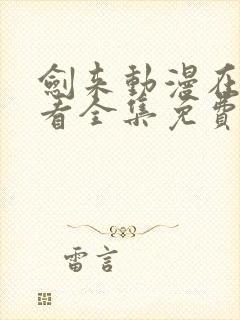 劍来動漫在
看全集免費
雷言